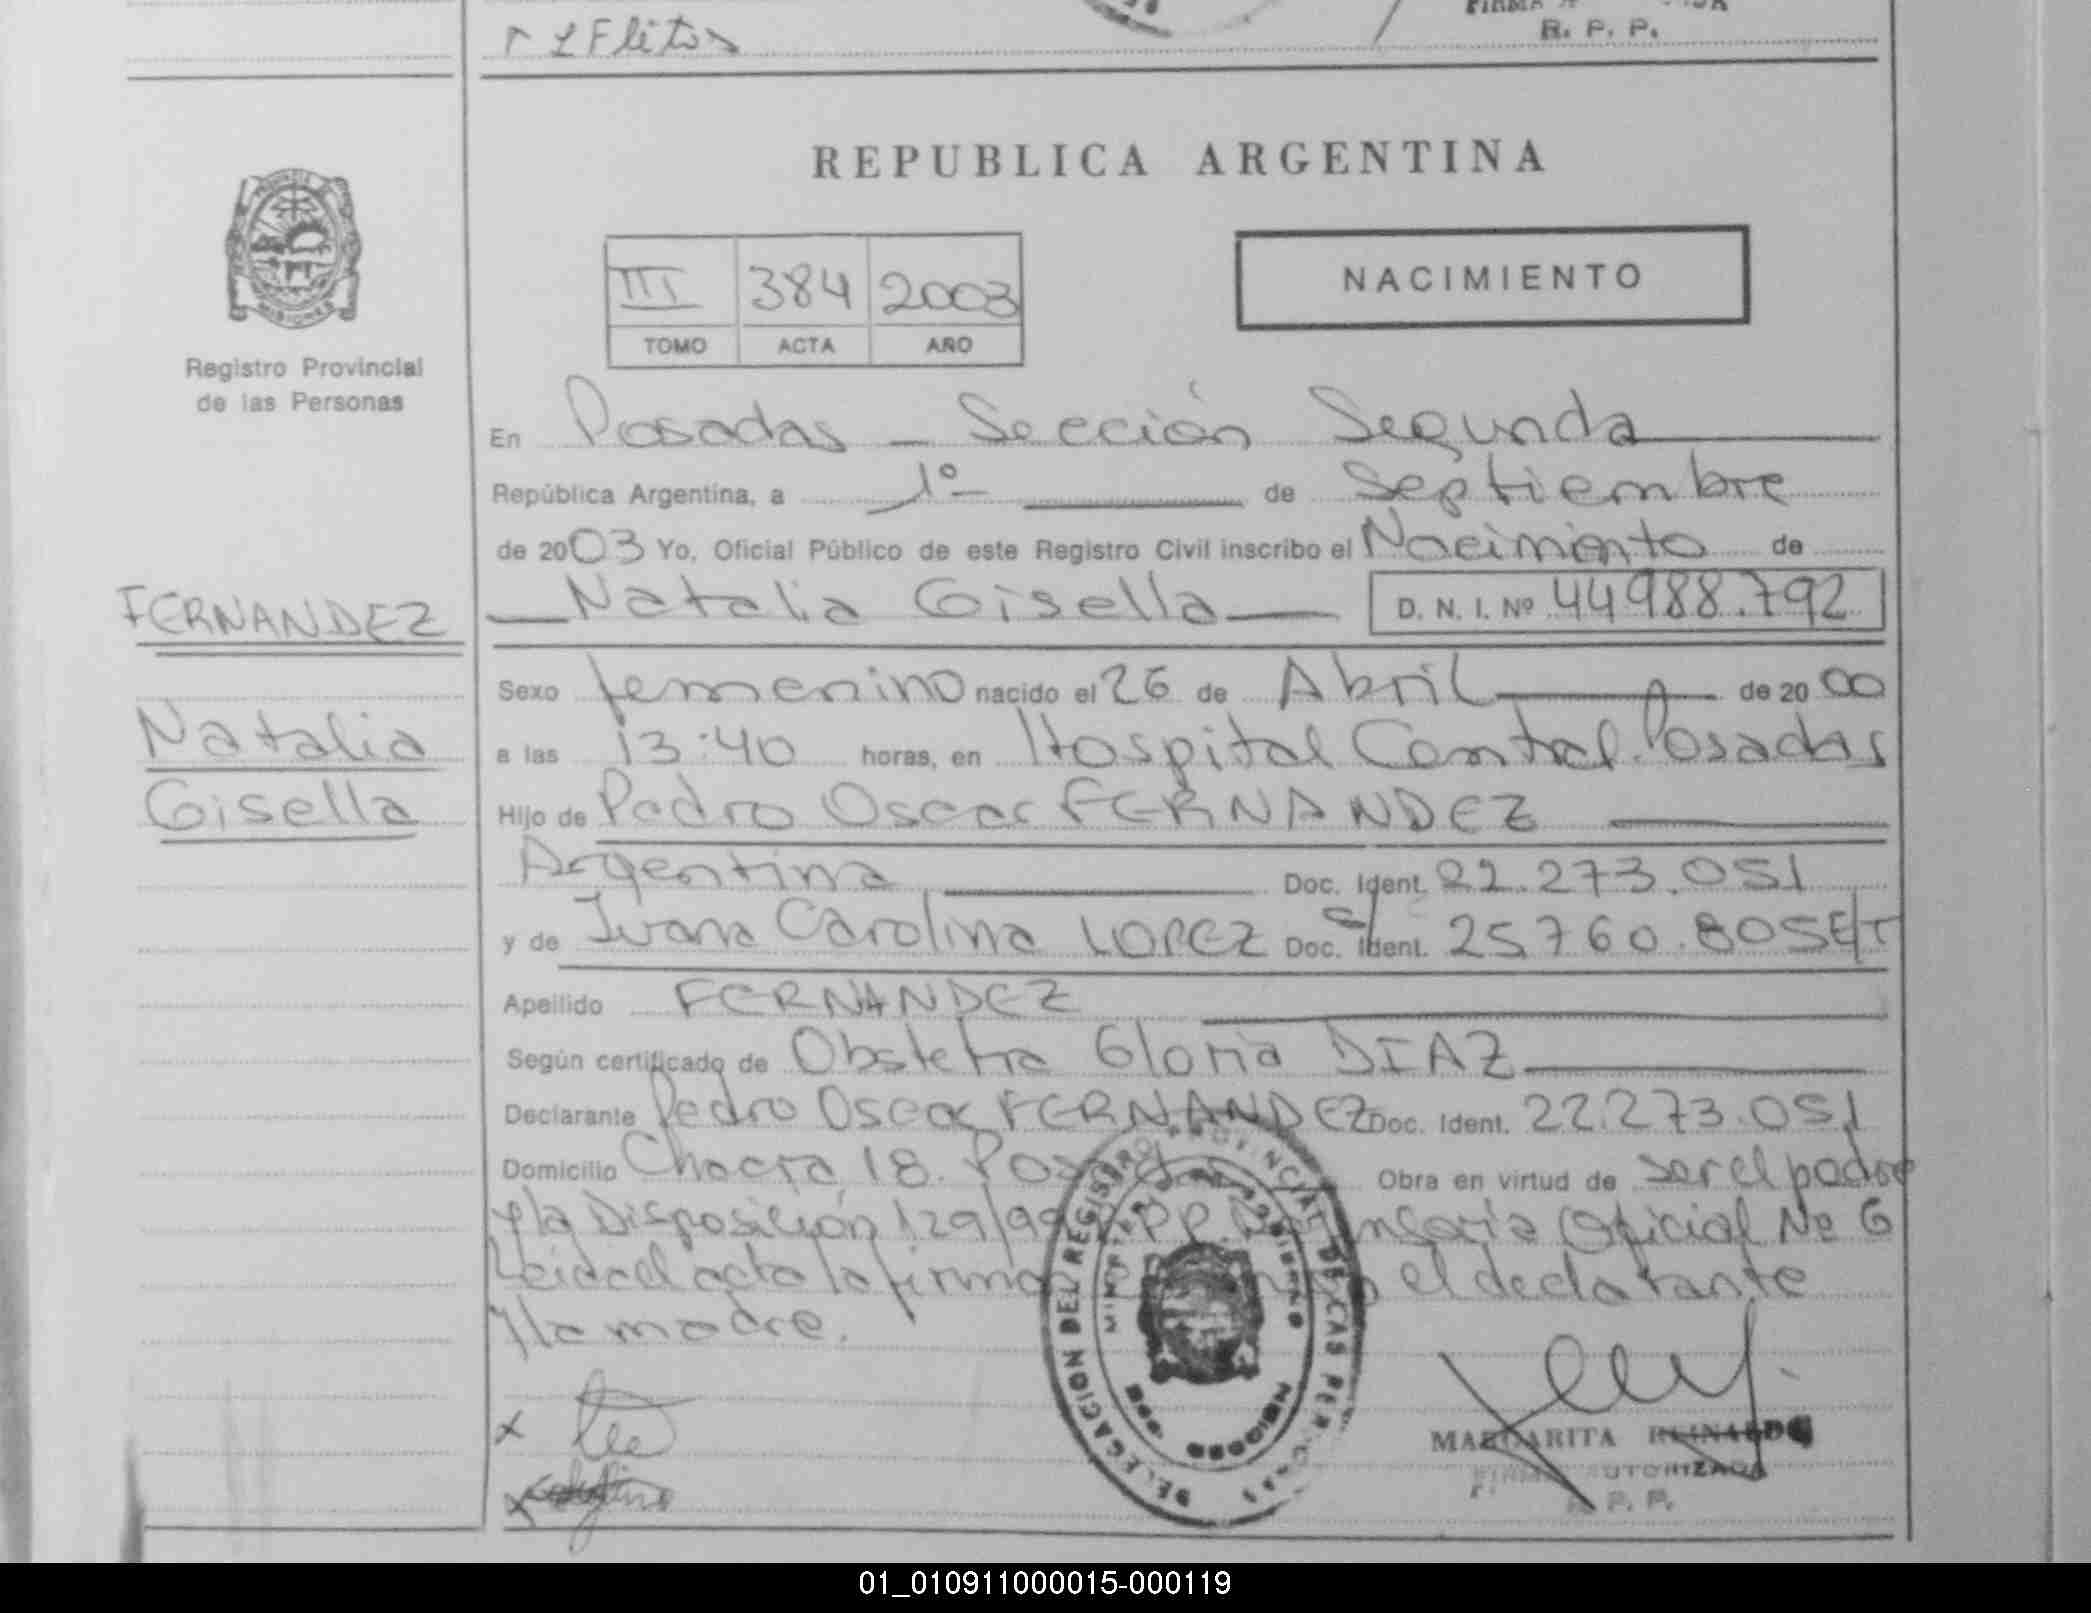 R. P. P.
REPUBLICA ARGENTINA
III 384 2003
TOMO ACTA AÑO
NACIMIENTO
Registro Provincial
de las Personas
En Posadas - Sección Segunda
República Argentina, a 1º de Septiembre
de 2003 Yo, Oficial Público de este Registro Civil inscribo el Nacimiento de
FERNANDEZ
Natalia Gisella D. N. I. Nº 44988.792
Sexo femenino nacido el 26 de Abril de 2000
Natalia
a las 13:40 horas, en Hospital Central. Posadas
Gisella
Hijo de Pedro Oscar FERNANDEZ
Argentina Doc. Ident. 22.273.051
y de Ivana Carolina LOPEZ Doc. Ident. 25760.805
Apellido FERNANDEZ
Según certificado de Obstetra Gloria DIAZ
Declarante Pedro Oscar FERNANDEZ Doc. Ident. 22.273.051
Domicilio Chacra 18. Posadas Obra en virtud de ser el padre
y la Disposición 129/99 Oficial No 6
Leida el acta la firman el declarante
y la madre.
DELEGACION DEL REGISTRO PROVINCIAL DE LAS PERSONAS
MARGARITA REINALDO
FIRMA AUTORIZADA
R. P. P.
01_010911000015-000119